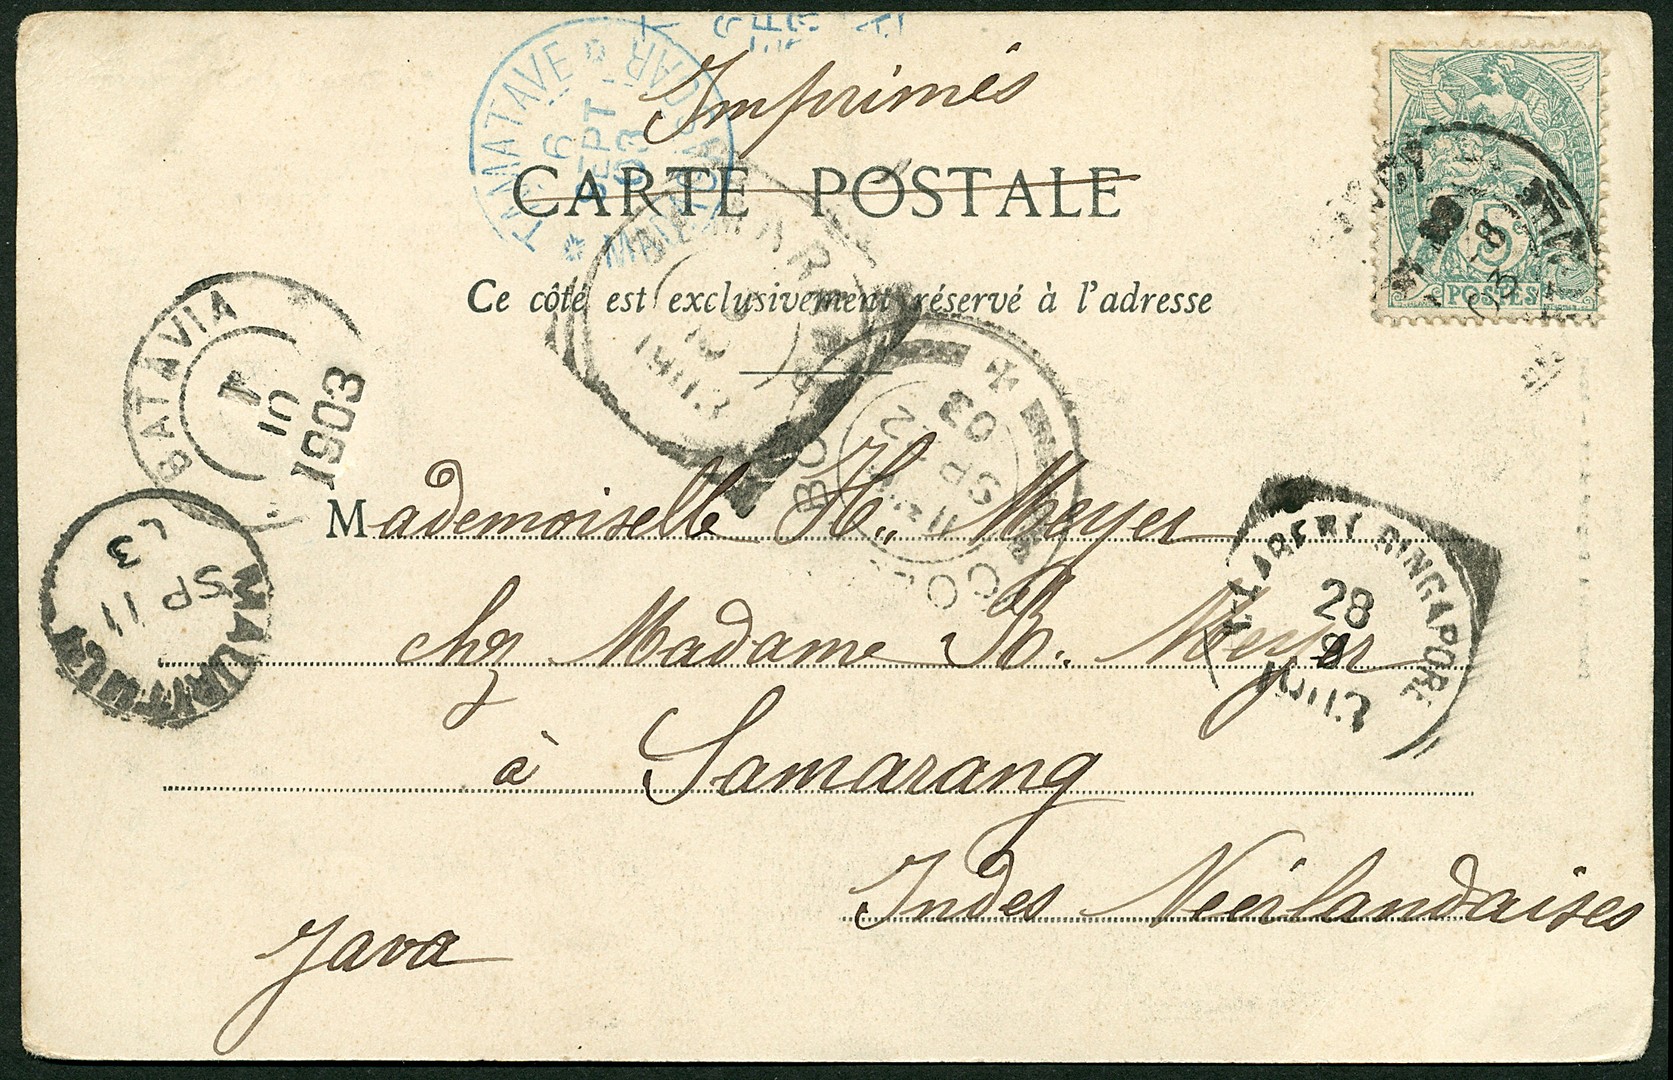 Imprimés
TAMATAVE
6
SEPT
03
CARTE POSTALE
Ce côté est exclusivement réservé à l'adresse
POSTES
BATAVIA
1903
COLOMBO
SP 
03
Mademoiselle H. Meyer
MAURITIUS
SP 11
03
SINGAPORE
28
chz Madame R. Meyer
à Samarang
Indes Neêrlandaises
Java